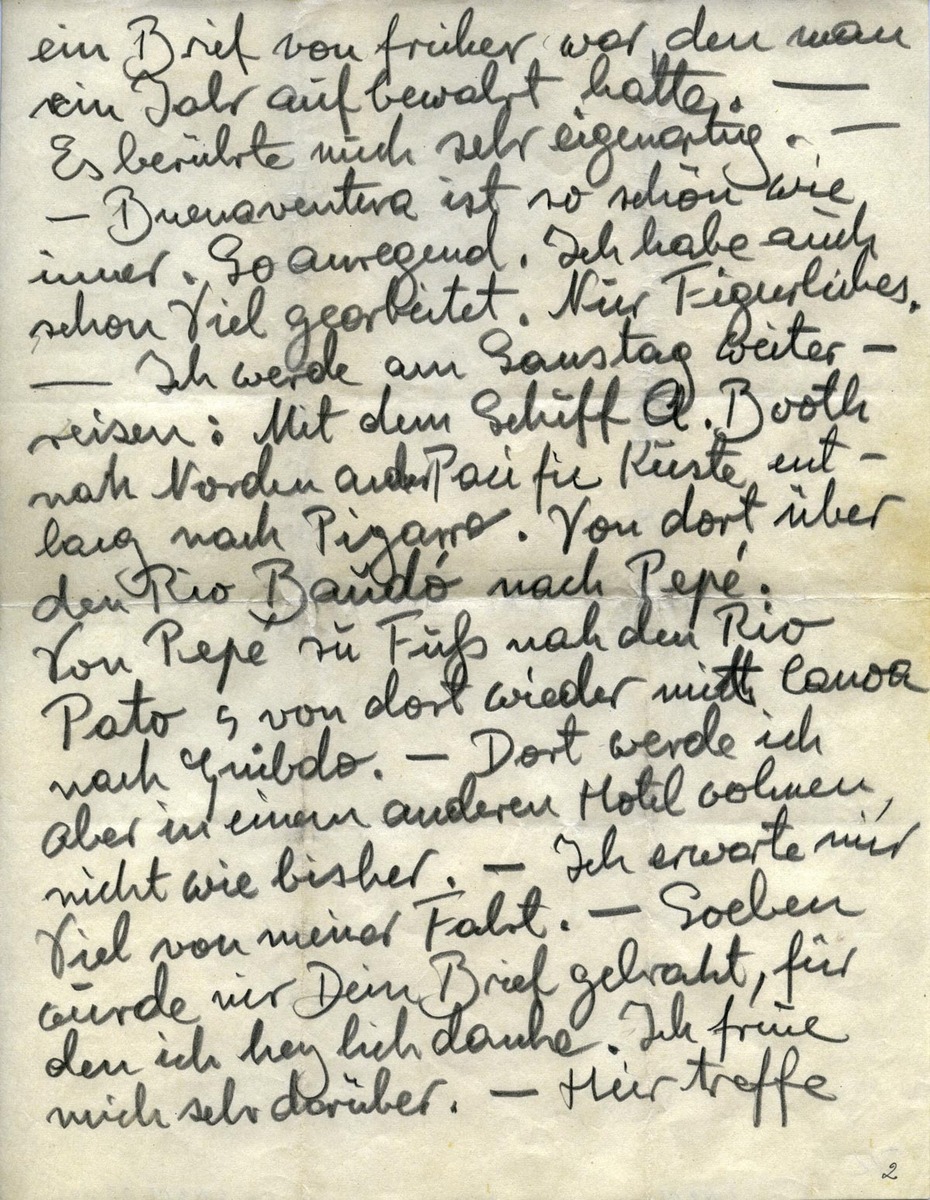 ein Brief von früher war den man
ein Jahr aufbewahrt hatte. —
Es berührte mich sehr eigenartig. —
— Buenaventura ist so schön wie
immer. So anregend. Ich habe auch
schon Viel gearbeitet. Nur Figurliches.
— Ich werde am Samstag weiter –
reisen: Mit dem Schiff A. Booth
nach Norden an der Pacific Küste ent –
lang nach Pizarro. Von dort über
den Rio Baudó nach Pepé.
Von Pepé zu Fuß nach den Rio
Pato & von dort wieder mit Canoa
nach Quibdo. — Dort werde ich
aber in einem anderen Hotel wohnen,
nicht wie bisher. — Ich erwarte mir
Viel von meiner Fahrt. — Soeben
wurde mir Dein Brief gebracht, für
den ich herzlich danke. Ich freue
mich sehr darüber. — Hier treffe
2